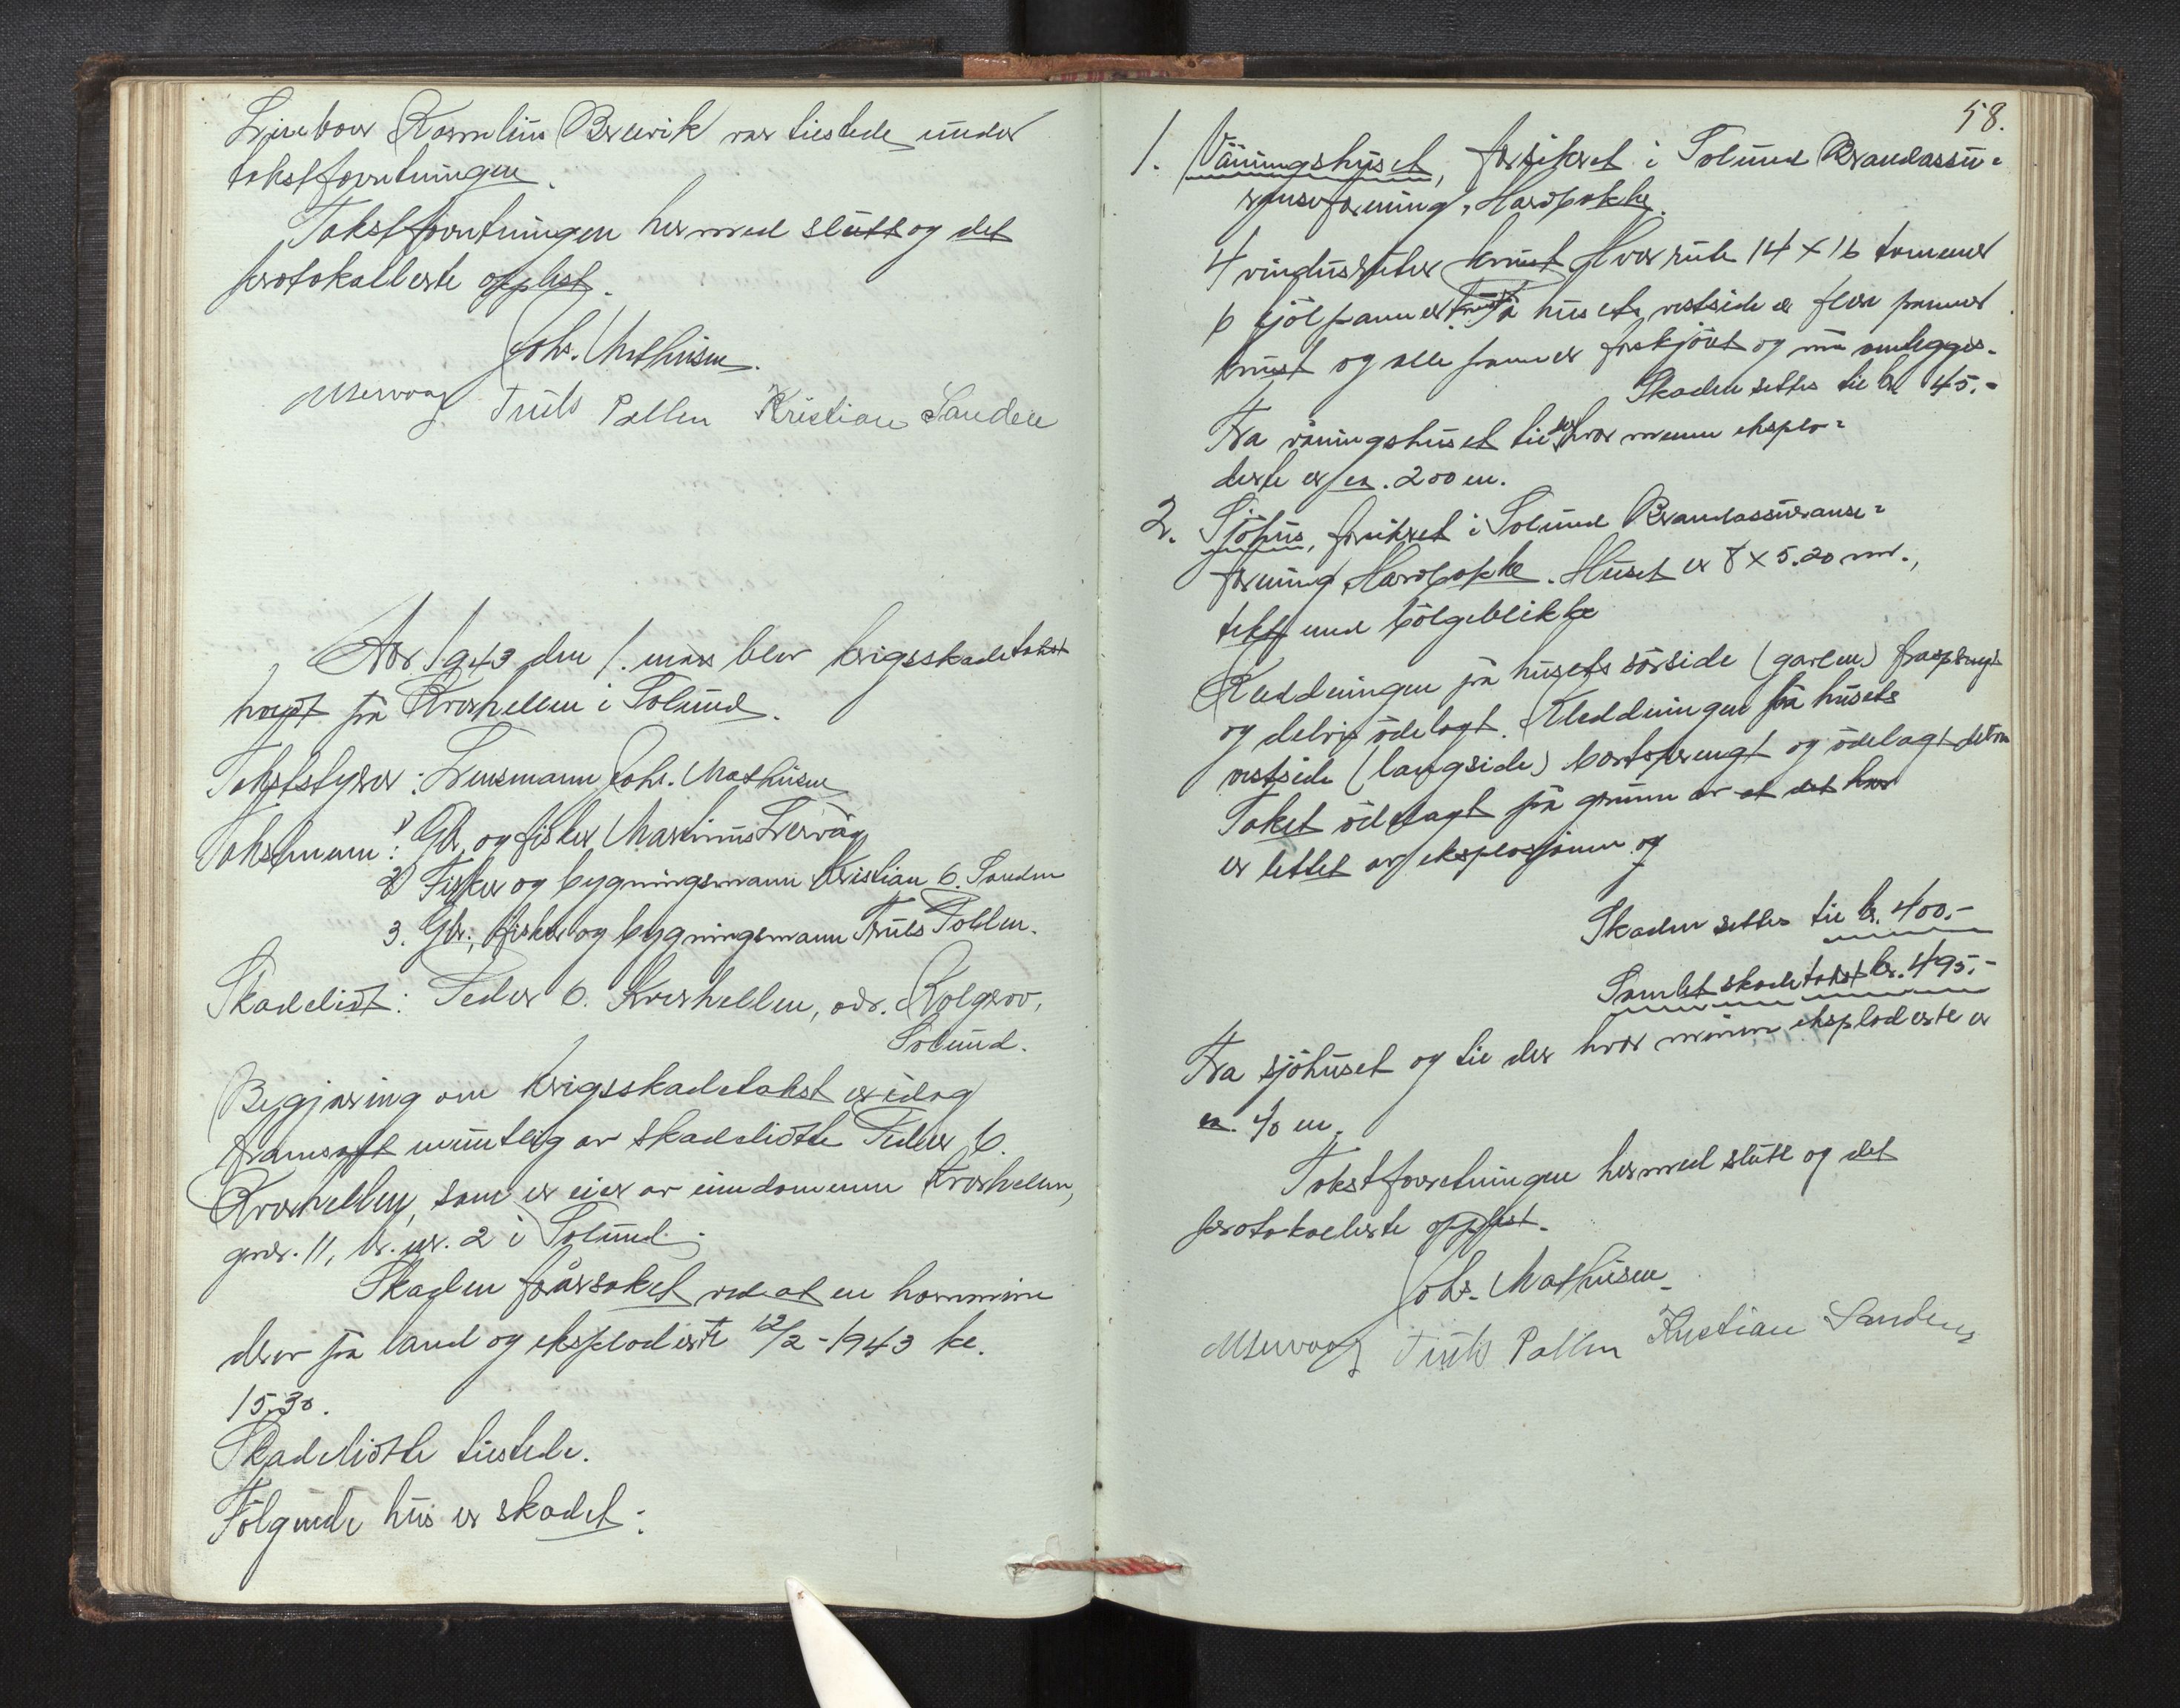 Leieboer Kornelius Brervik var tilstede under
takstforretningen.
Takstforretningen hermed slutt og det
protokollerte opplest.
Johs. Mathisen.
MLervaag Truls Pollen Kristian Sanden
Aar 1943 den 1. mars blev krigsskadetakst
høyst på Krakhellen i Solund.
Takststyrer: Lensmann Johs. Mathisen
Takstmenn: 1) Gbr. og fisker Martinus Lervåg
2) Fisker og bygningsmann Kristian O. Sanden
3. Gbr., fisker og bygningsmann Truls Pollen.
Skadelidt: Peder O. Krakhellen, adr. Kolgrov,
Solund.
Begjæring om krigsskadetakst er idag
framsatt muntlig av skadelidte Peder O.
Krakhellen, som er eier av eiendommen Krakhellen,
gnr. 11, br. nr. 2 i Solund.
Skaden forårsaket ved at en hornmine
drev på land og eksploderte 12/2-1943 kl.
15.30.
Skadelidte tilstede.
Følgende hus er skadet:
58.
1. Våningshuset, forsikret i Solund Brandassu-
ranseforening, Hardbakke.
4 vindusruter knust Hver rute 14 x 16 tommer
6 kjølpanner knust. På husets vestside er flere panner
knust og alle panner forskjøvet og må omlegges.
Skaden settes til kr. 45.-
Fra våningshuset til der hvor minen eksplo-
derte er ca. 200 m.
2. Sjøhus, forsikret i Solund Brandassuranse-
forening Hardbakke. Huset er 8 x 5.20 m.,
tekt med bølgeblikk
Kleddningen på husets sørside (gavlen) frasprengt
og delvis ødelagt. Kleddningen på husets
vestside (langside) bortsprengt og ødelagt delvis
Taket ødelagt på grunn av at det har
er lettet av eksplosjonen og
Skaden settes til kr. 400.-
Samlet skadetakst kr. 495.-
Fra sjøhuset og til der hvor minen eksploderte er
ca. 40 m.
Takstforretningen hermed slutt og det
protokollerte opplest.
Johs. Mathisen.
MLervaag Truls Pollen Kristian Sanden